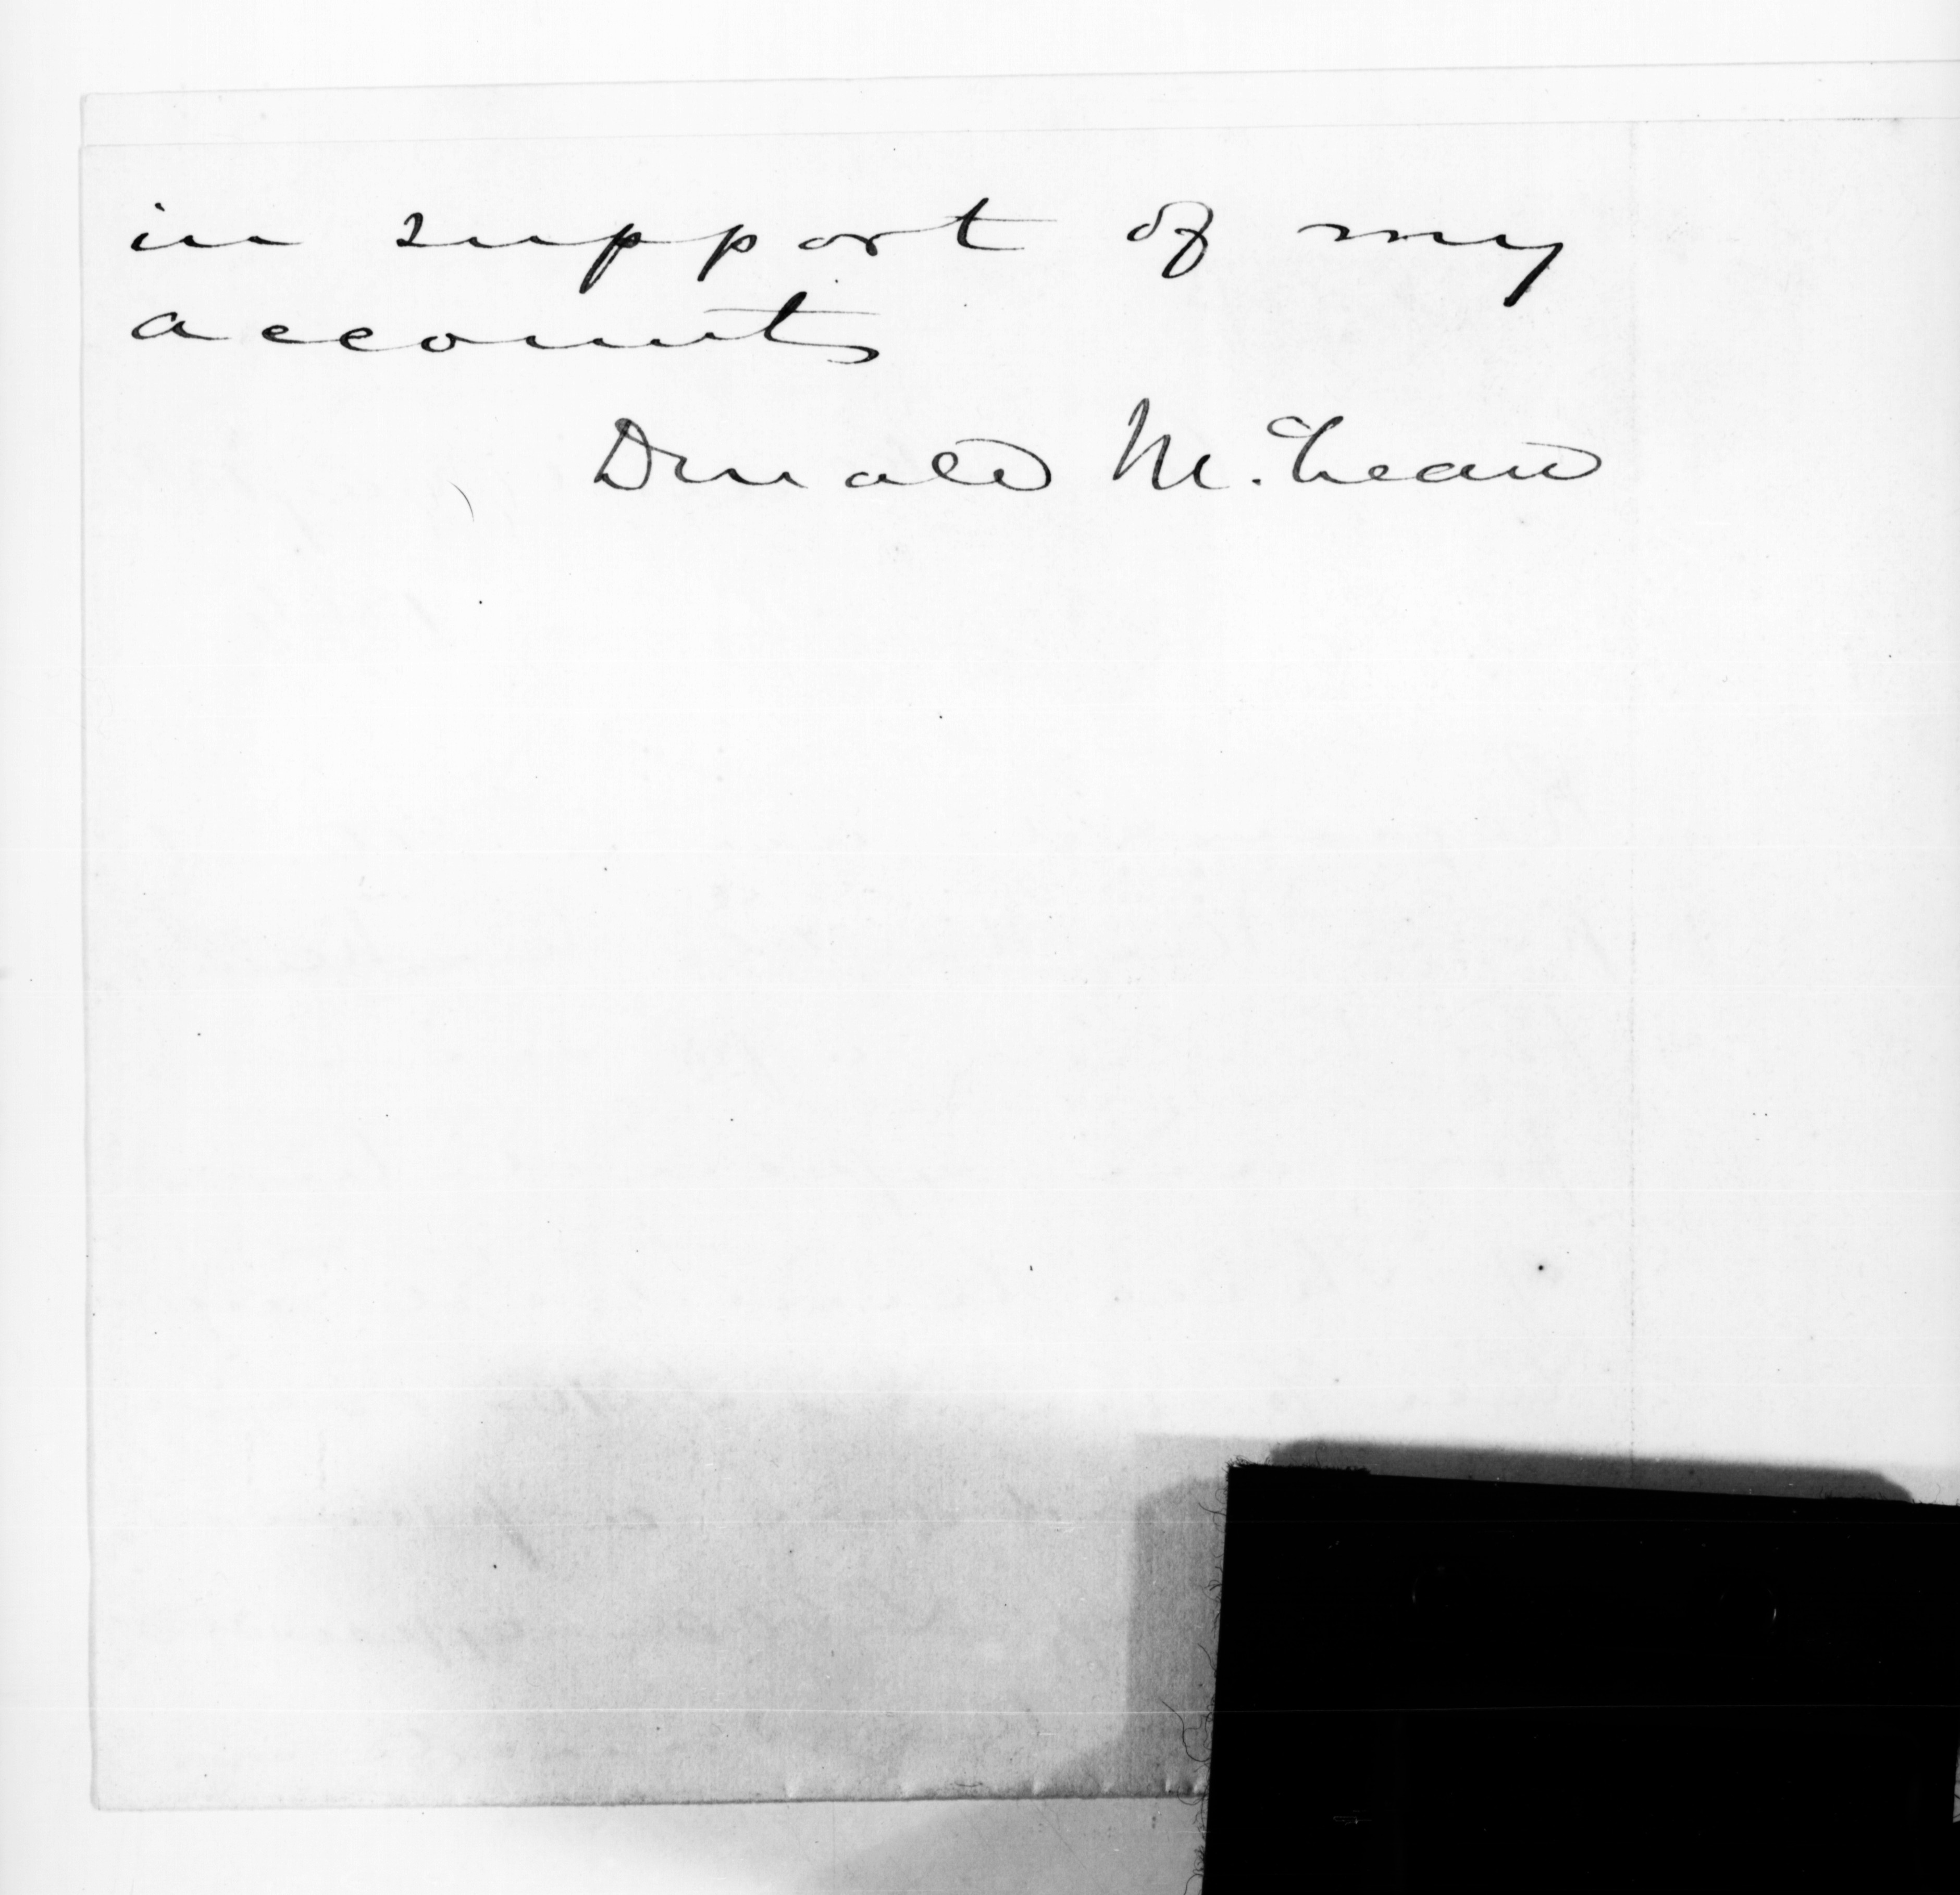 in support of my
accounts
Donald McLean